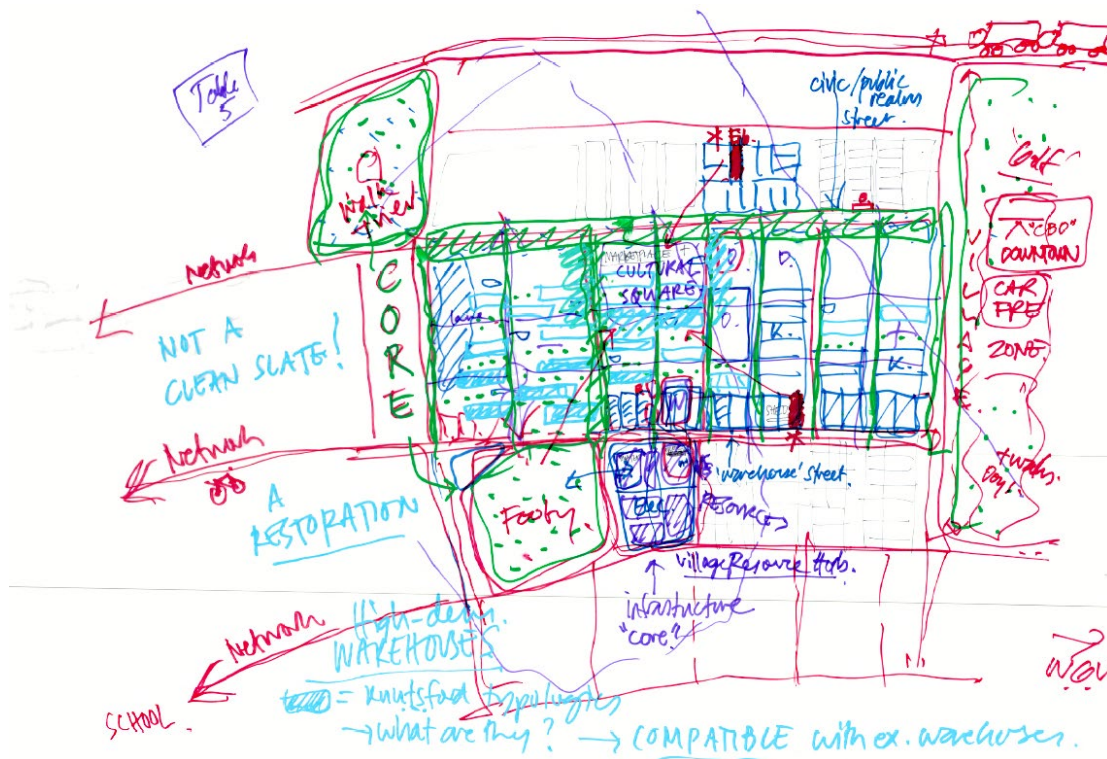 Table
5
civic/public
realm
street.
Golf
"CBD"
DOWNTOWN
CAR
FREE
ZONE
Network
NOT A
CLEAN SLATE!
CORE
MARKETPLACE
CULTURAL
SQUARE
lane
D.
D.
D.
K.
K.
Network
A
RESTORATION
Footy.
'warehouse' street.
RESOURCES
Village Resource Hub.
infrastructure
"core"?
Network
SCHOOL.
High-density
WAREHOUSES
= Knutsford typologies
→ what are they? → COMPATIBLE with ex. warehouses.